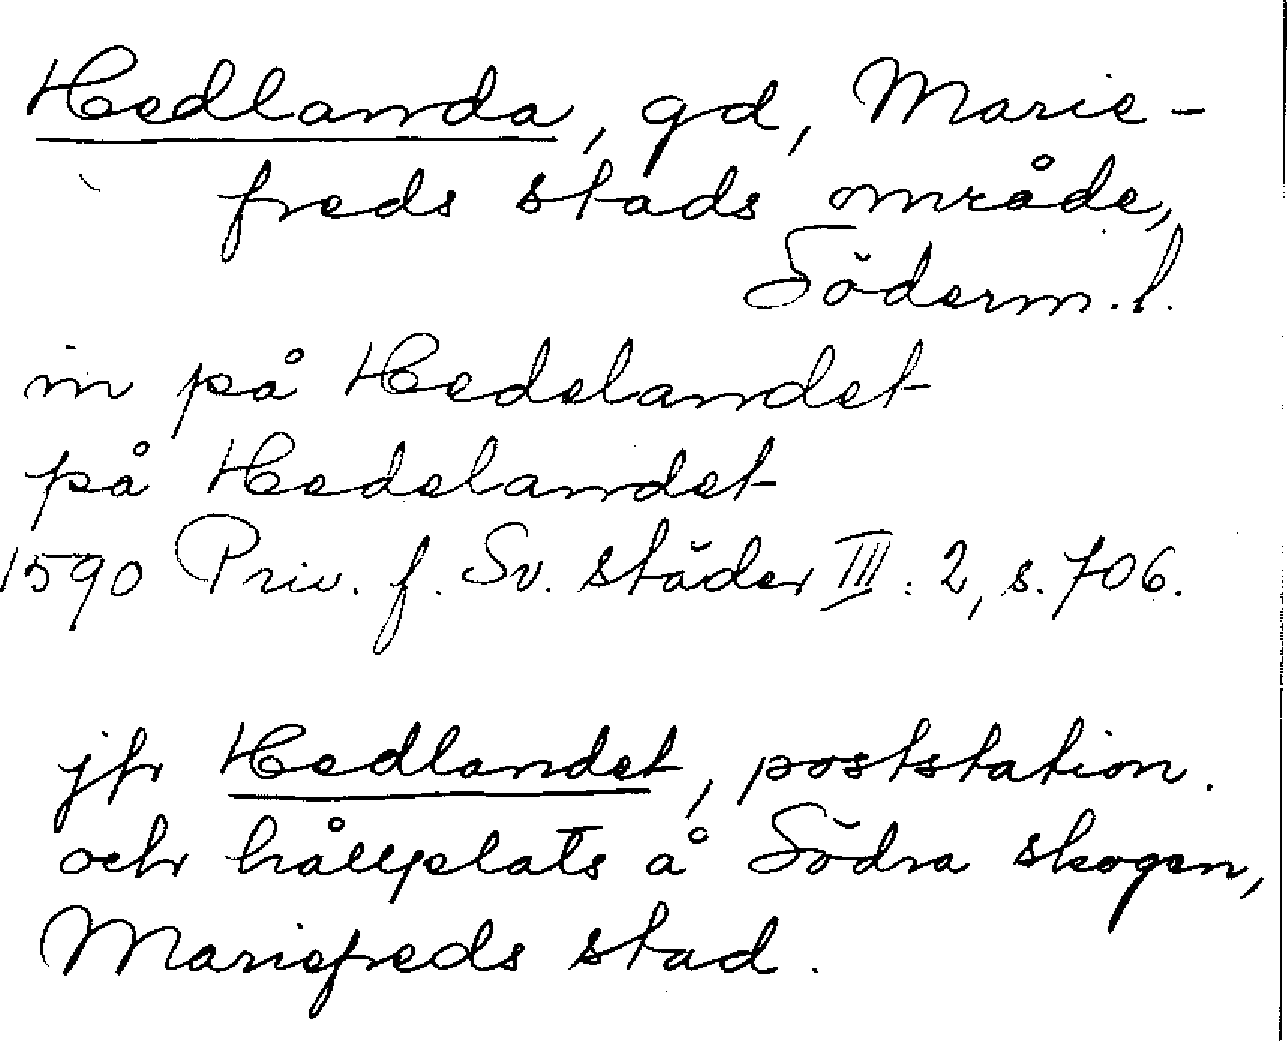 Hedlanda, gd, Marie-
freds stads område,
Söderm. l.
in på Hedelandet
på Hedelandet
1590 Priv. f. Sv. städer III: 2, s. 706.
jfr Hedlandet, poststation.
och hållplats å Södra skogen,
Mariefreds stad.